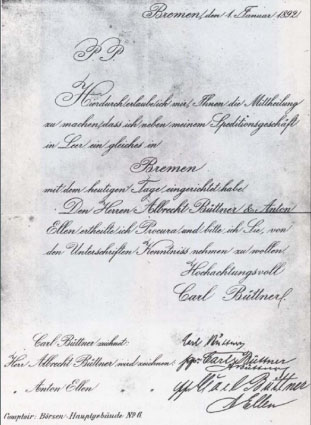 Bremen, den 1. Januar 1892.
P. P.
Hierdurch erlaube ich mir, Ihnen die Mittheilung
zu machen, dass ich neben meinem Speditionsgeschäft
in Leer ein gleiches in
Bremen
mit dem heutigen Tage eingerichtet habe.
Den Herren Albrecht Büttner & Anton
Ellen ertheilte ich Procura und bitte ich Sie, von
den Unterschriften Kenntniss nehmen zu wollen.
Hochachtungsvoll
Carl Büttner.
Carl Büttner zeichnet: Carl Büttner
Herr Albrecht Büttner wird zeichnen: ppr. Carl Büttner
A Büttner
" Anton Ellen " " pp. Carl Büttner
A Ellen
Comptoir: Börsen-Hauptgebäude No 6.